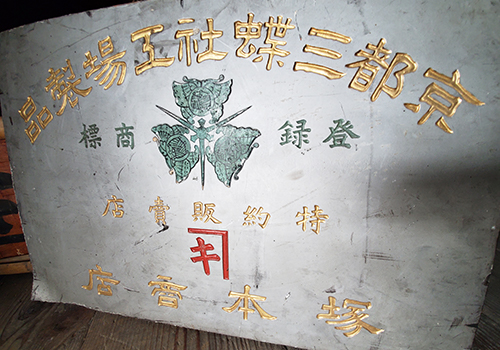 京都三蝶社工場製品
登録商標
特約販賣店
キ
塚本香店